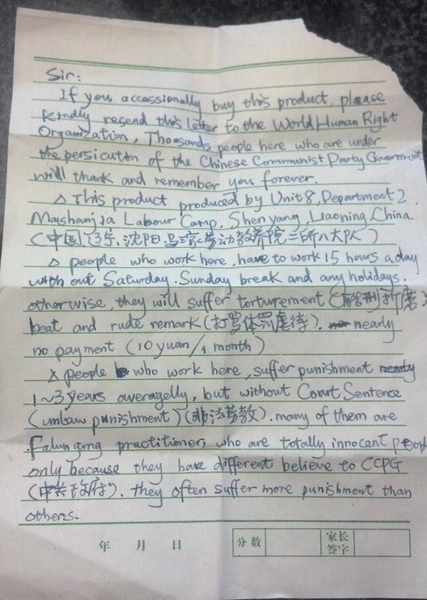 Sir:
If you occassionally buy this product, please
kindly resend this letter to the World Human Right
Organization, Thousands people here who are under
the persicution of the Chinese Communist Party Government
will thank and remember you forever
△ This product produced by Unit 8, Department 2
Mashanjia Labour Camp, Shenyang, Liaoning, China.
(中国,辽宁,沈阳,马三家劳动教养院二所八大队)
△ people who work here, have to work 15 hours a day
with out Saturday, Sunday break and any holidays.
otherwise, they will suffer torturement (酷刑折磨)
beat and rude remark (打骂体罚虐待). nearly
no payment (10 yuan/1 month)
△ people who work here, suffer punishment
1~3 years averagelly, but without Court Sentence
(unlaw punishment) (非法劳教). many of them are
Falun gong practitioner, who are totally innocent people
only because they have different believe to CCPG
(中共政府). they often suffer more punishment than
others.
年 月 日 分数 家长签字